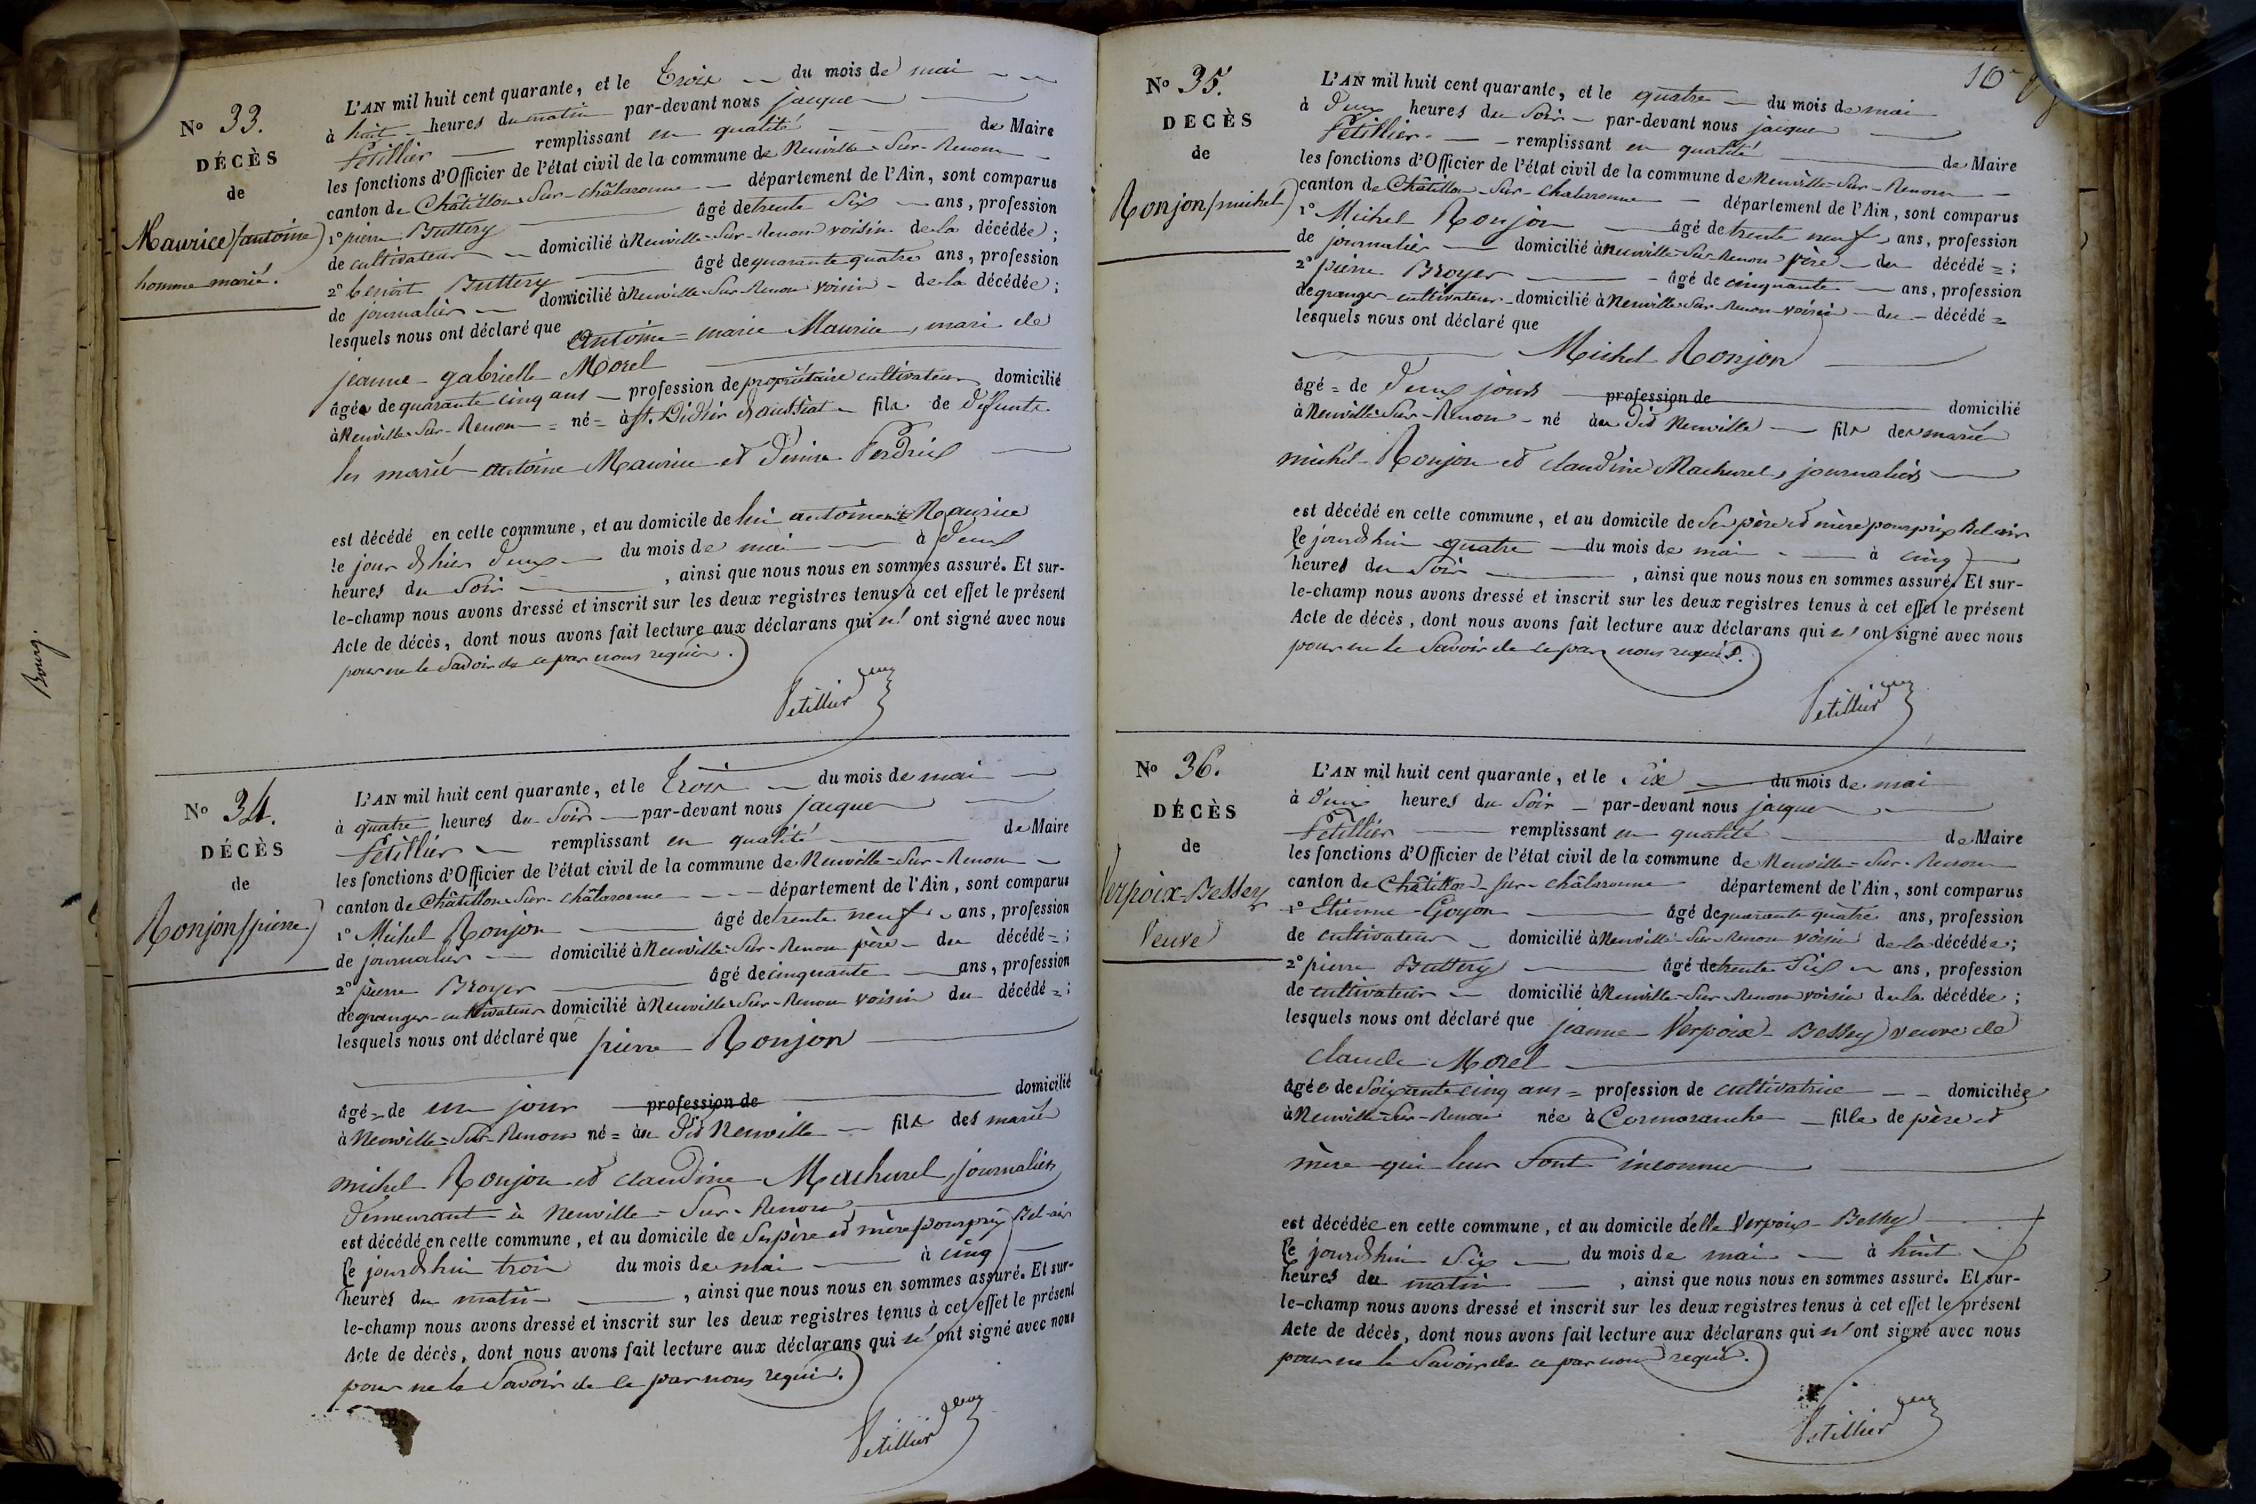 Bourg.
Nº 33.
DÉCÈS
de
Maurice (antoine)
homme marié.
L'AN mil huit cent quarante, et le trois du mois de mai
à huit heures du matin par-devant nous jacques
Petillier remplissant en qualité de Maire
les fonctions d'Officier de l'état civil de la commune de Neuville-Sur-Renom
canton de Châtillon-Sur-châlaronne département de l'Ain, sont comparus
1º pierre Buttery âgé de trente six ans, profession
de cultivateur domicilié à Neuville-Sur-Renom voisin de la décédée;
2º benoit Buttery âgé de quarante quatre ans, profession
de journalier domicilié à Neuville-Sur-Renom voisin de la décédée;
lesquels nous ont déclaré que antoine-marie Maurice, mari de
jeanne-gabrielle Morel
âgée de quarante cinq ans profession de propriétaire cultivateur domicilié
à Neuville-Sur-Renom = né = à St. Didier d'aussiat fils de defunts
les mariés antoine Maurice et Denise Perdrix
est décédé en cette commune, et au domicile de lui antoine Maurice
le jour d'hier deux du mois de mai à deux
heures du Soir, ainsi que nous nous en sommes assuré. Et sur-
le-champ nous avons dressé et inscrit sur les deux registres tenus à cet effet le présent
Acte de décès, dont nous avons fait lecture aux déclarans qui n' ont signé avec nous
pour ne le Savoir de ce par nous requis.
Petillier
Nº 34.
DÉCÈS
de
Ronjon (pierre)
L'AN mil huit cent quarante, et le trois du mois de mai
à quatre heures du Soir par-devant nous jacques
Petillier remplissant en qualité de Maire
les fonctions d'Officier de l'état civil de la commune de Neuville-Sur-Renom
canton de Châtillon-Sur-châlaronne département de l'Ain, sont comparus
1º Michel Ronjon âgé de trente neuf ans, profession
de journalier domicilié à Neuville-Sur-Renom père du décédé = ;
2º pierre Broyer âgé de cinquante ans, profession
de granger-cultivateur domicilié à Neuville-Sur-Renom voisin du décédé = ;
lesquels nous ont déclaré que pierre Ronjon
âgé = de un jour profession de domicilié
à Neuville-Sur-Renom né = au dit Neuville fils des mariés
michel Ronjon et claudine Machurel, journaliers
demeurant à Neuville-Sur-Renom
est décédé en cette commune, et au domicile de Ses père et mère pourprix Bel-air
le jourd'hui trois du mois de mai à cinq
heures du matin, ainsi que nous nous en sommes assuré. Et sur-
le-champ nous avons dressé et inscrit sur les deux registres tenus à cet effet le présent
Acte de décès, dont nous avons fait lecture aux déclarans qui n' ont signé avec nous
pour ne le Savoir de ce par nous requis.
Petillier
Nº 35.
DÉCÈS
de
Ronjon (michel)
L'AN mil huit cent quarante, et le quatre du mois de mai
à deux heures du Soir par-devant nous jacques
Petillier remplissant en qualité de Maire
les fonctions d'Officier de l'état civil de la commune de Neuville-Sur-Renom
canton de Châtillon-Sur-chalaronne département de l'Ain, sont comparus
1º Michel Ronjon âgé de trente neuf ans, profession
de journalier domicilié à Neuville-Sur-Renom père du décédé = ;
2º pierre Broyer âgé de cinquante ans, profession
de granger-cultivateur domicilié à Neuville-Sur-Renom voisin du décédé =
lesquels nous ont déclaré que
Michel Ronjon
âgé = de deux jours profession de domicilié
à Neuville-Sur-Renom né au dit Neuville fils des mariés
michel Ronjon et claudine Machurel, journaliers
est décédé en cette commune, et au domicile de Ses père et mère pourprix Bel-air
le jourd'hui quatre du mois de mai à cinq
heures du Soir, ainsi que nous nous en sommes assuré. Et sur-
le-champ nous avons dressé et inscrit sur les deux registres tenus à cet effet le présent
Acte de décès, dont nous avons fait lecture aux déclarans qui n' ont signé avec nous
pour ne le Savoir de ce par nous requis.
Petillier
Nº 36.
DÉCÈS
de
Verpoix-Bessey
Veuve
L'AN mil huit cent quarante, et le Six du mois de mai
à deux heures du Soir par-devant nous jacques
Petillier remplissant en qualité de Maire
les fonctions d'Officier de l'état civil de la commune de Neuville-Sur-Renom
canton de Châtillon-sur-châlaronne département de l'Ain, sont comparus
1º Etienne Goyon âgé de quarante quatre ans, profession
de cultivateur domicilié à Neuville-Sur-Renom voisin de la décédée;
2º pierre Buttery âgé de trente Six ans, profession
de cultivateur domicilié à Neuville-Sur-Renom voisin de la décédée;
lesquels nous ont déclaré que jeanne Verpoix-Bessey veuve de
claude Morel
âgée de Soixante cinq ans = profession de cultivatrice domiciliée
à Neuville-Sur-Renom née à Cormoranche fille de père et
mère qui leur Sont inconnus
est décédée en cette commune, et au domicile d'elle Verpoix-Bessey
le jourd'hui Six du mois de mai à huit
heures du matin, ainsi que nous nous en sommes assuré. Et sur-
le-champ nous avons dressé et inscrit sur les deux registres tenus à cet effet le présent
Acte de décès, dont nous avons fait lecture aux déclarans qui n' ont signé avec nous
pour ne le Savoir de ce par nous requis.
Petillier